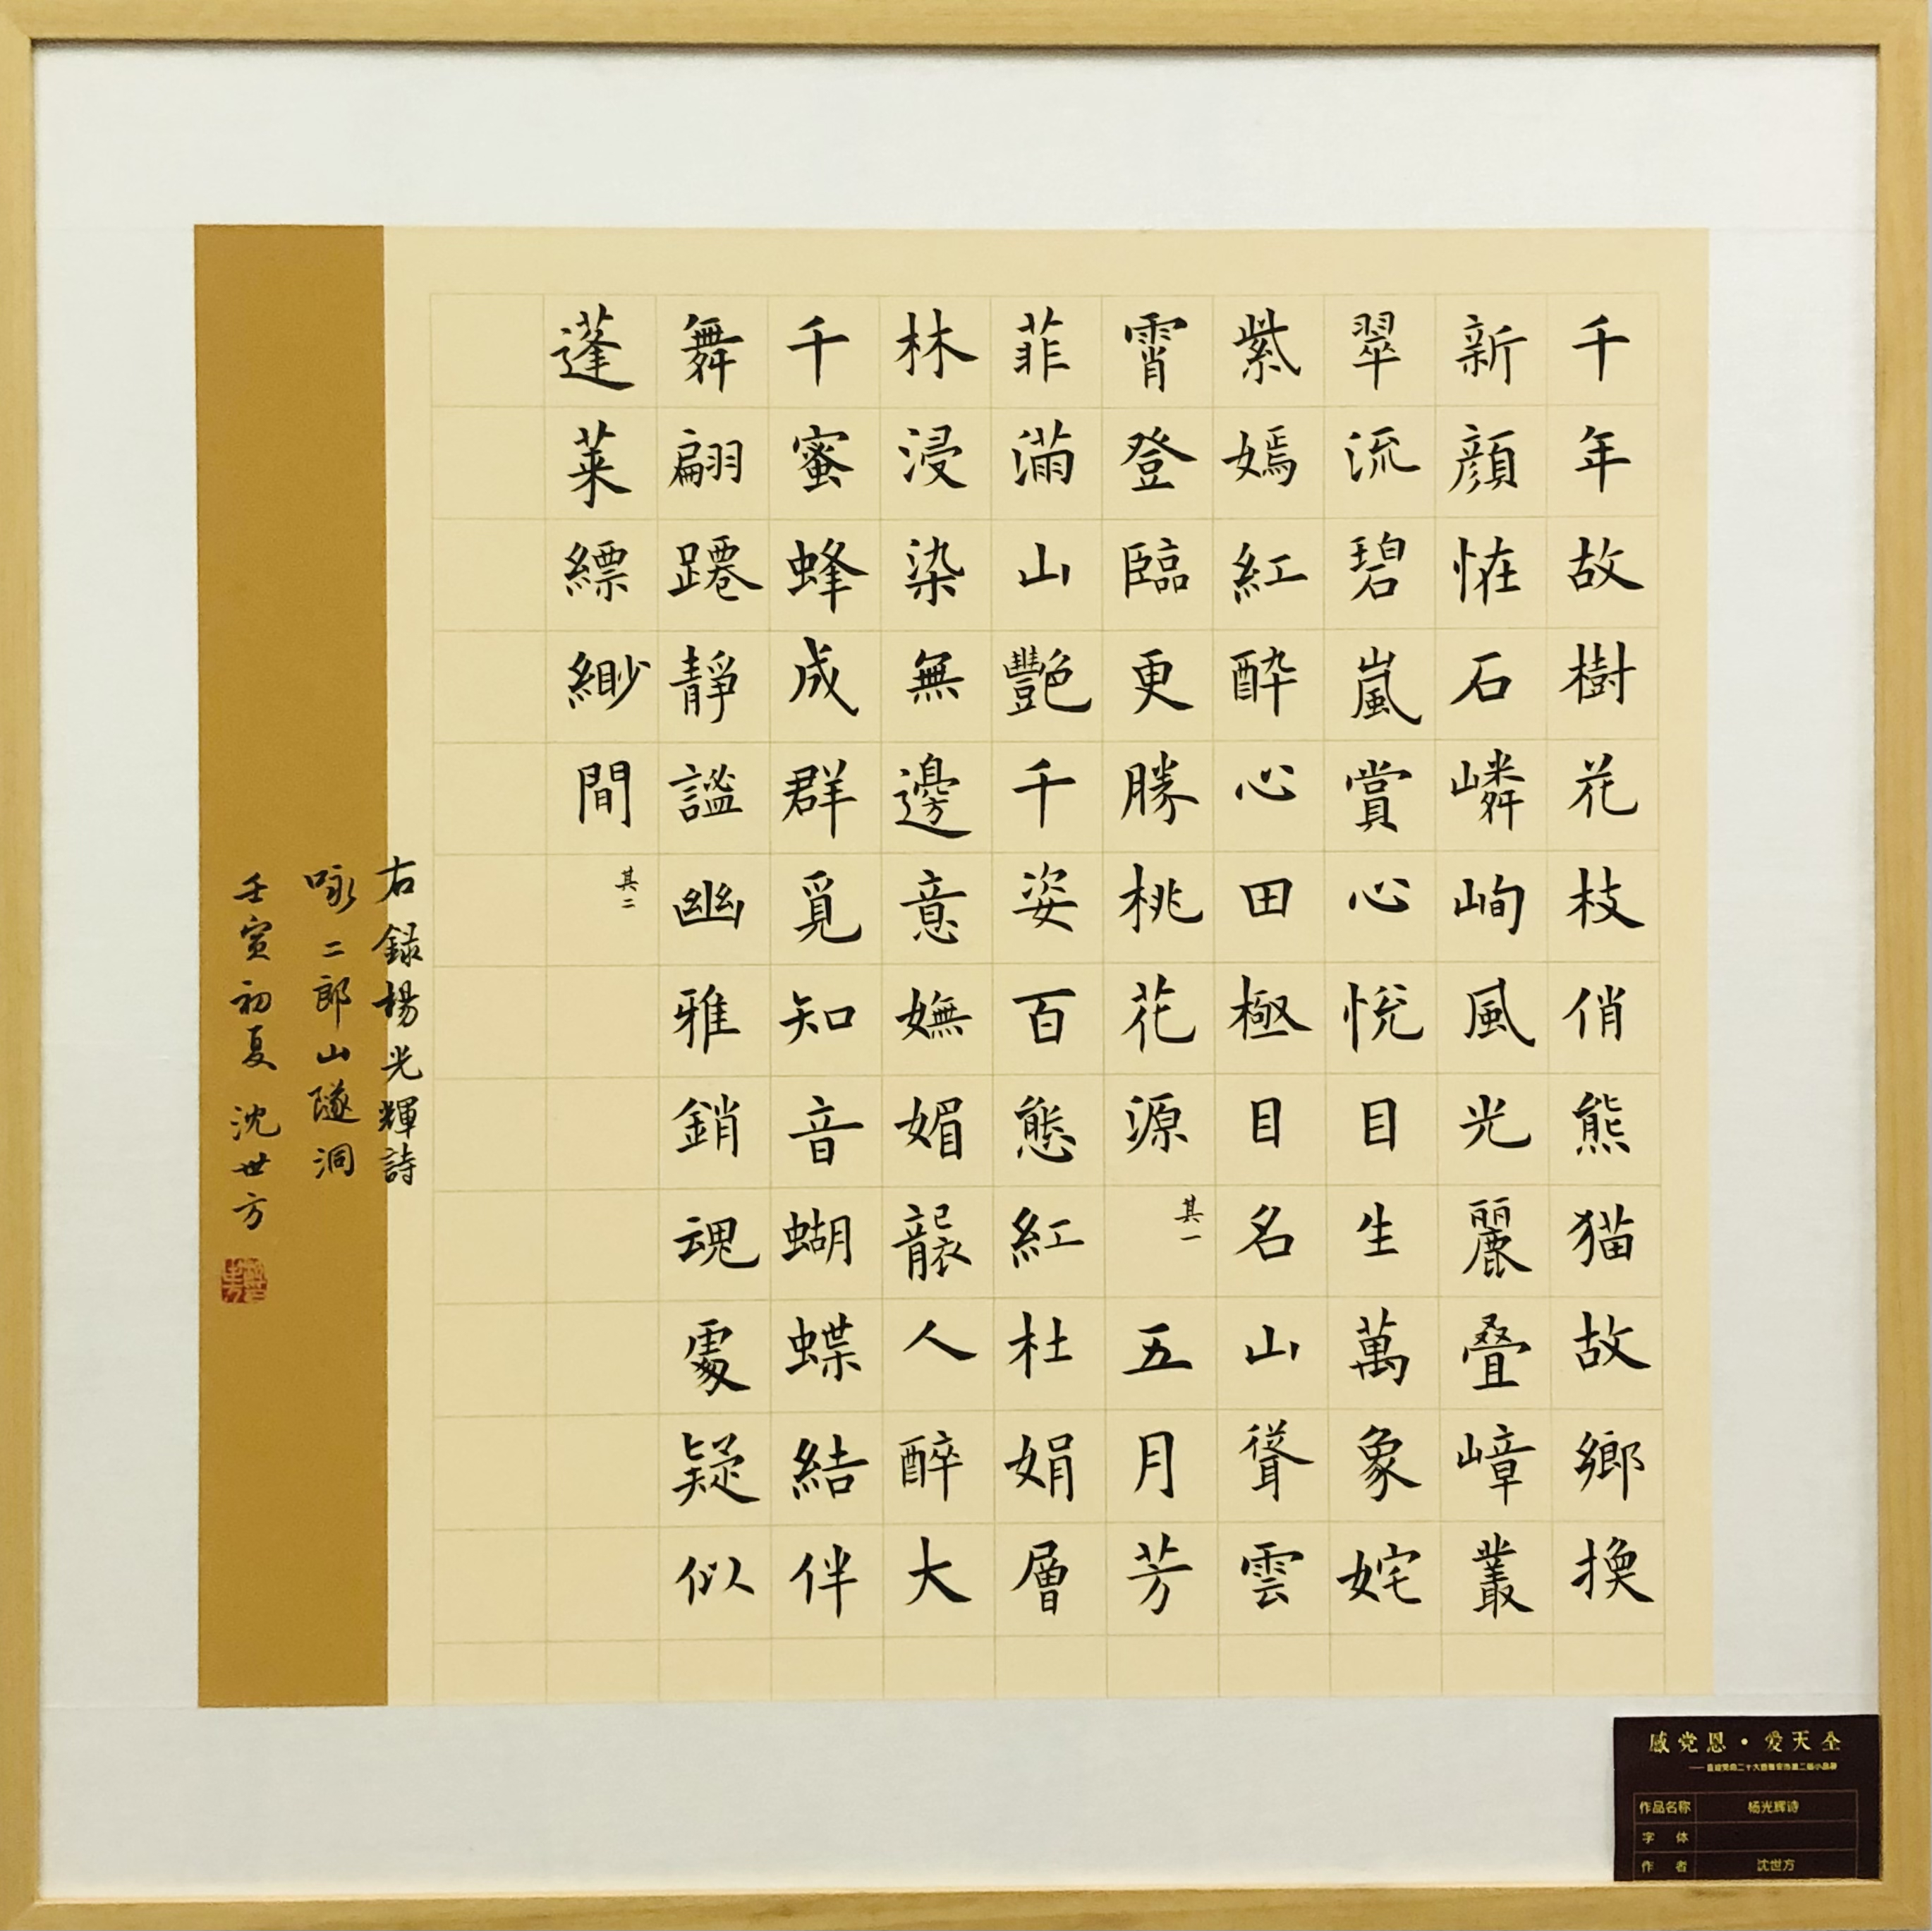 千年故樹花枝俏熊猫故鄉換
新顏恠石嶙峋風光麗叠嶂叢
翠流碧嵐賞心悅目生萬象姹
紫嫣紅酔心田極目名山聳雲
霄登臨更勝桃花源 其一 五月芳
菲滿山艷千姿百態紅杜娟層
林浸染無邊意嫵媚襲人醉大
千蜜蜂成群覓知音蝴蝶結伴
舞翩躚靜謐幽雅銷魂處疑似
蓬萊縹緲間 其二
右録楊光輝詩
咏二郎山隧洞
壬寅初夏 沈世方
感党恩·爱天全
作品名称 杨光辉诗
字 体
作 者 沈世方